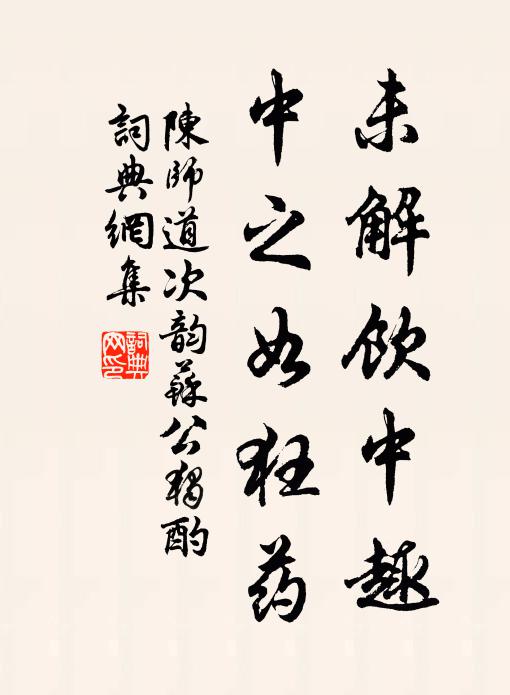 未解饮中趣
中之如狂药
陳師道次韵蘇公獨酌
詞典網集
詞典網印